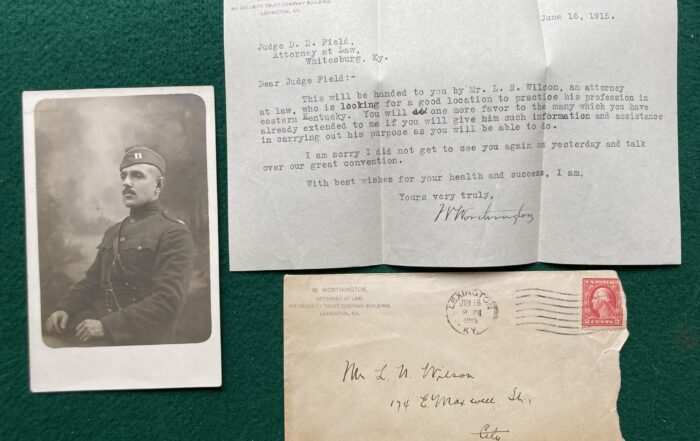 SECURITY TRUST COMPANY BUILDING,
LEXINGTON, KY.
June 16, 1915.
Judge D. D. Field,
Attorney at Law,
Whitesburg, Ky.
Dear Judge Field:-
This will be handed to you by Mr. L. N. Wilson, an attorney
at law, who is looking for a good location to practice his profession in
eastern Kentucky. You will add one more favor to the many which you have
already extended to me if you will give him such information and assistance
in carrying out his purpose as you will be able to do.
I am sorry I did not get to see you again on yesterday and talk
over our great convention.
With best wishes for your health and success, I am,
Yours very truly,
W Worthington
W. WORTHINGTON,
ATTORNEY AT LAW,
SECURITY TRUST COMPANY BUILDING,
LEXINGTON, KY.
LEXINGTON
JUN 16
PM
1915
KY.
U.S. POSTAGE
2 CENTS 2
Mr L. N. Wilson
174 E Maxwell St.,
City